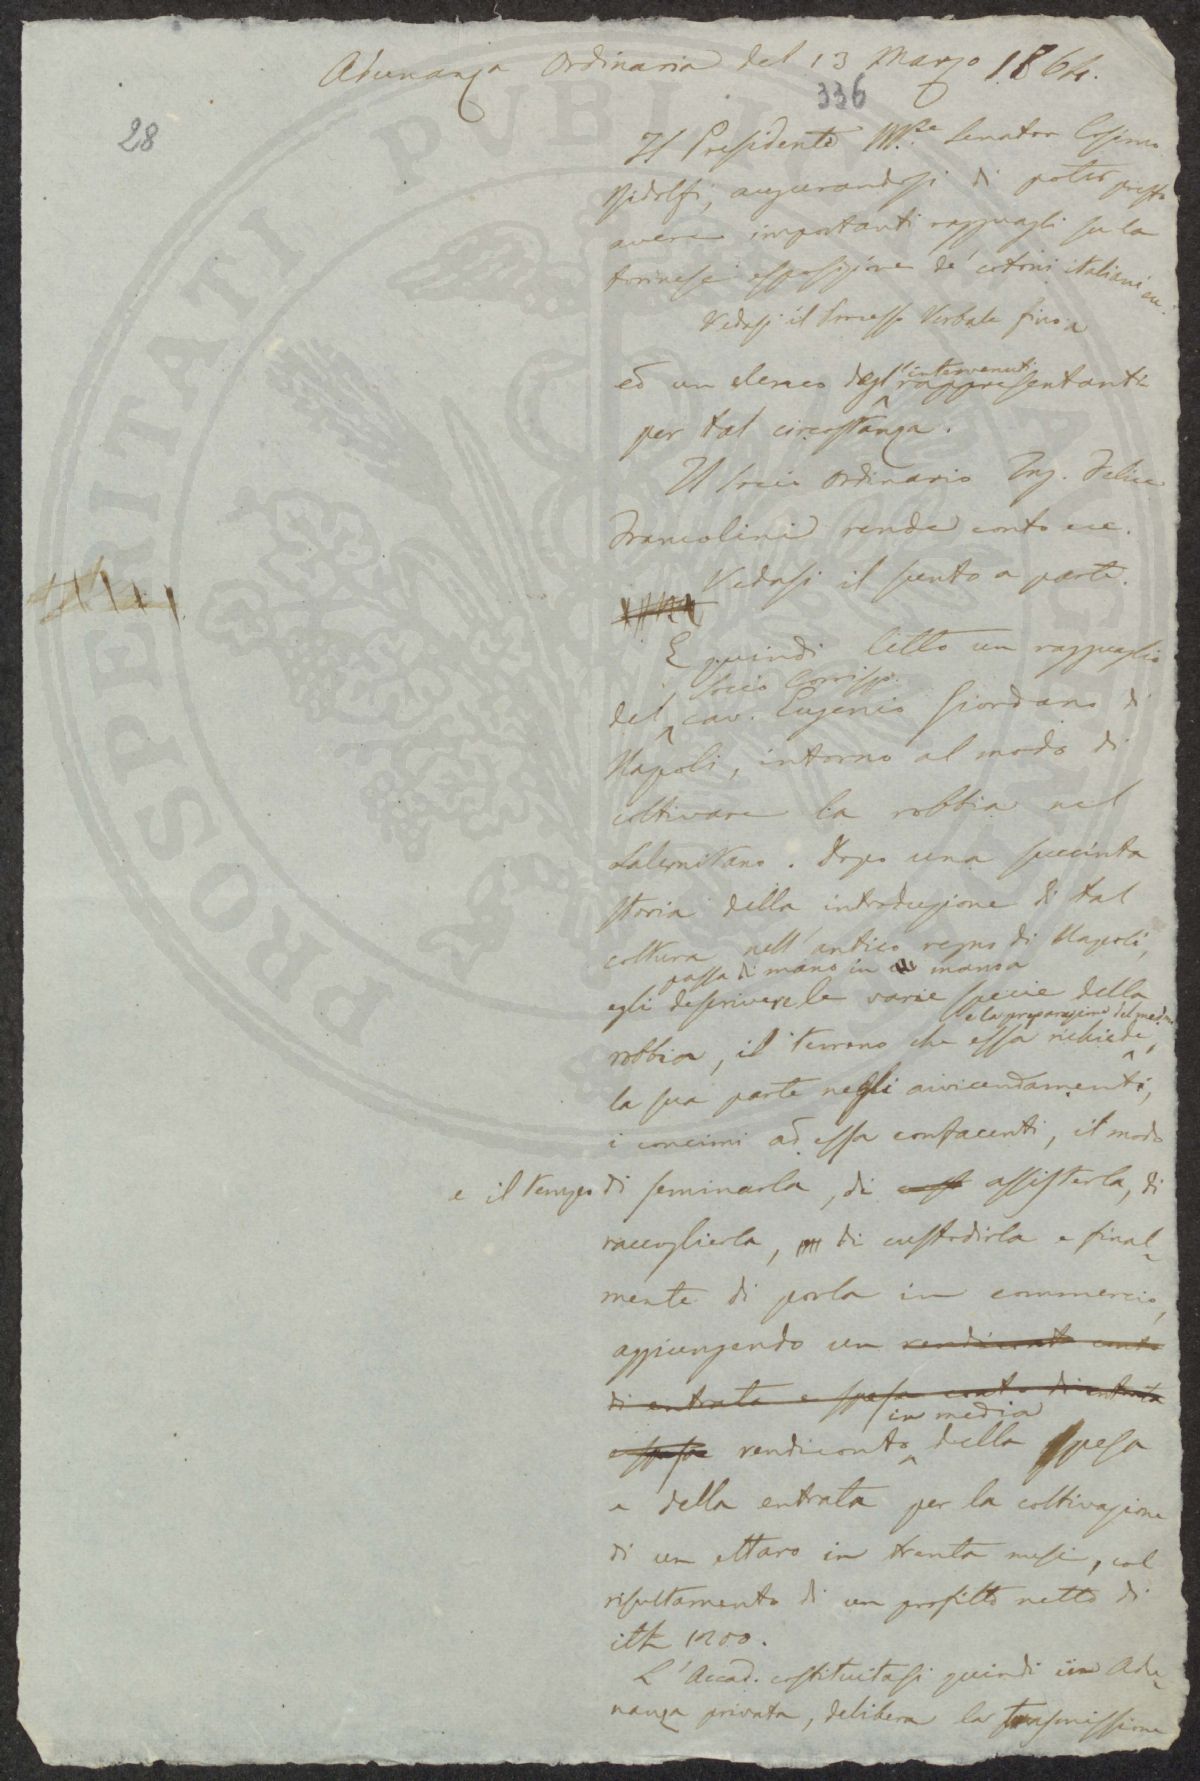 Adunanza Ordinaria del 13 Marzo 1864.
336
28
Il Presidente M.se Senator Cosimo
Ridolfi, augurandosi di poter presto
avere importanti ragguagli su la
torinese esposizione de' cotoni italiani ec.
Vedasi il Processo Verbale fino a
ed un elenco degl' intervenuti rappresentanti
per tal circostanza.
Il Socio Ordinario Ing. Felice
Francolini rende conto ecc.
Vedasi il sunto a parte.
È quindi letto un ragguaglio
socio Corrisp.
del cav. Eugenio Giordano di
Napoli, intorno al modo di
coltivare la robbia nel
Salernitano. Dopo una succinta
storia della introduzione di tal
coltura nell' antico regno di Napoli,
passa di mano in mano a
egli descrivere le varie specie della
e la preparazione del medmo
robbia, il terreno che essa richiede,
la sua parte negli avvicendamenti,
i concimi ad essa confacenti, il modo
e il tempo di seminarla, di assisterla, di
raccoglierla, di custodirla e final-
mente di porla in commercio,
aggiungendo un rendiconto conto
di entrata e spesa conto di entrata
e spesa rendiconto in media della spesa
e della entrata per la coltivazione
di un ettaro in trenta mesi, col
risultamento di un profitto netto di
it£ 1200.
L' Accad. costituitasi quindi in Adu-
nanza privata, delibera la trasmissione